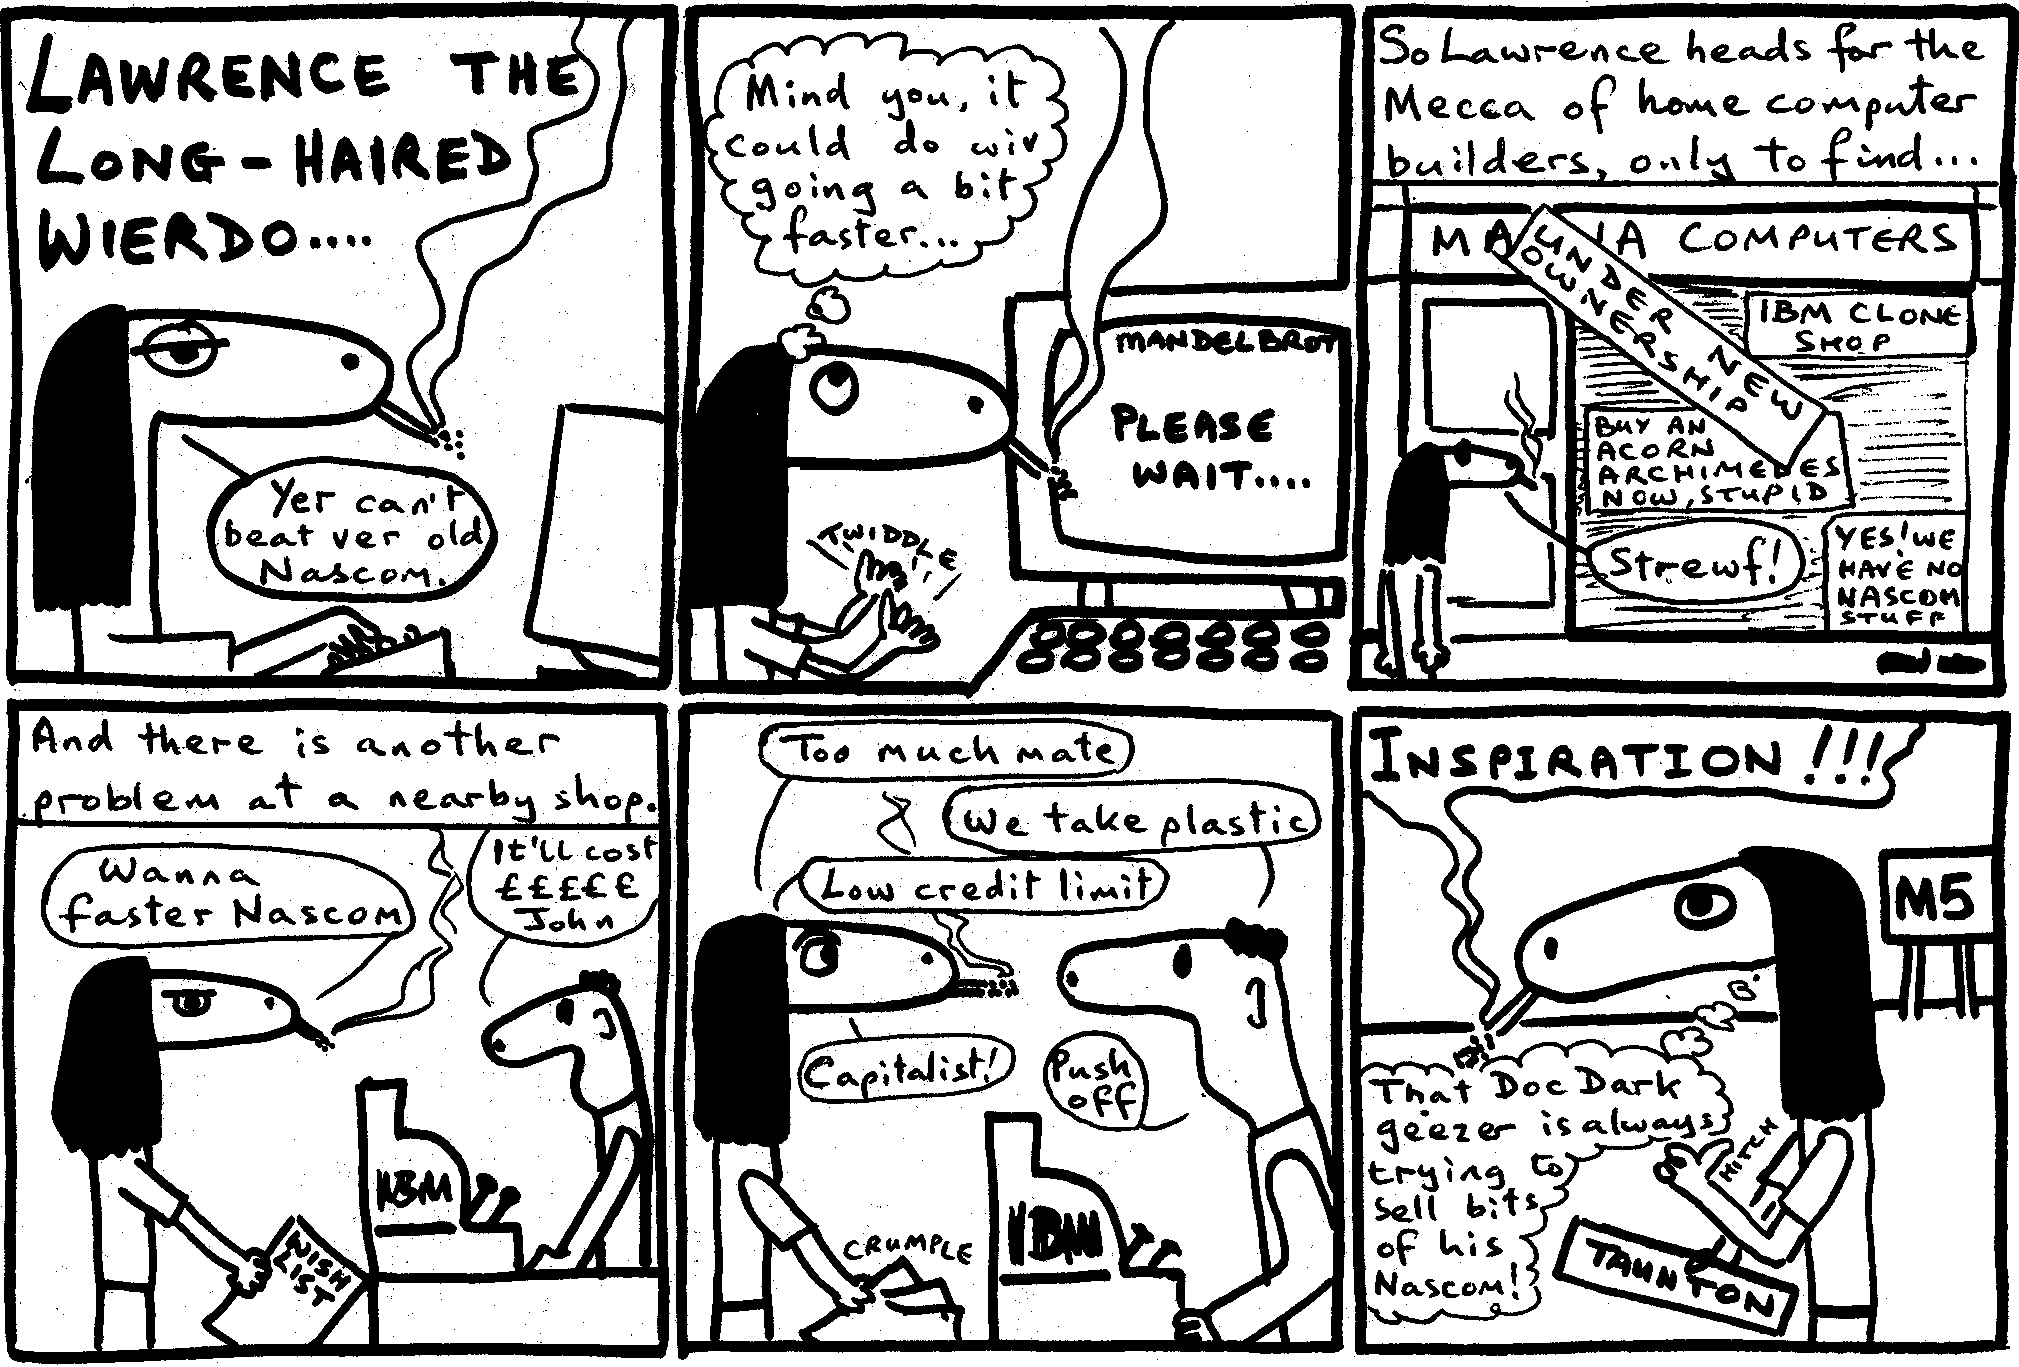 LAWRENCE THE
LONG-HAIRED
WIERDO....
Yer can't
beat ver old
Nascom.
Mind you, it
could do wiv
going a bit
faster...
MANDELBROT
PLEASE
WAIT....
TWIDDLE
So Lawrence heads for the
Mecca of home computer
builders, only to find...
COMPUTERS
UNDER NEW
OWNERSHIP
IBM CLONE
SHOP
BUY AN
ACORN
ARCHIMEDES
NOW, STUPID
Strewf!
YES! WE
HAVE NO
NASCOM
STUFF
And there is another
problem at a nearby shop.
Wanna
faster Nascom
It'll cost
£££££
John
IBM
WISH
LIST
Too much mate
We take plastic
Low credit limit
Capitalist!
Push
off
CRUMPLE
IBM
INSPIRATION!!!
M5
That Doc Dark
geezer is always
trying to
sell bits
of his
Nascom!
HITCH
TAUNTON